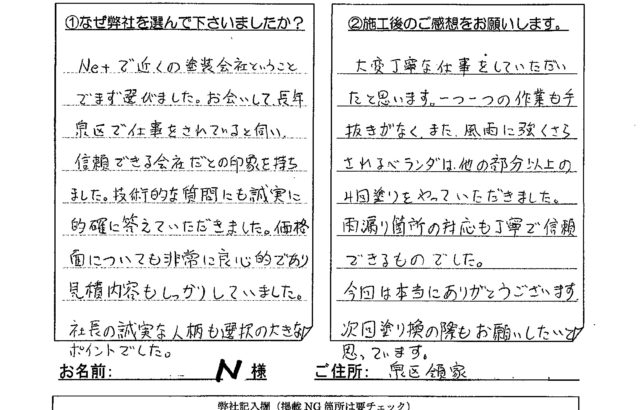 ①なぜ弊社を選んで下さいましたか？
Netで近くの塗装会社ということ
でまず選びました。お会いして長年
泉区で仕事をされていると伺い、
信頼できる会社だとの印象を持ち
ました。技術的な質問にも誠実に
的確に答えていただきました。価格
面についても非常に良心的であり
見積内容もしっかりしていました。
社長の誠実な人柄も選択の大きな
ポイントでした。
②施工後のご感想をお願いします。
大変丁寧な仕事をしていただい
たと思います。一つ一つの作業も手
抜きがなく、また、風雨に強くさら
されるベランダは、他の部分以上の
4回塗りをやっていただきました。
雨漏り箇所の対応も丁寧で信頼
できるものでした。
今回は本当にありがとうございます
次回塗り換の際もお願いしたいと
思っています。
お名前： N 様 ご住所： 泉区領家
弊社記入欄（掲載NG箇所は要チェック）